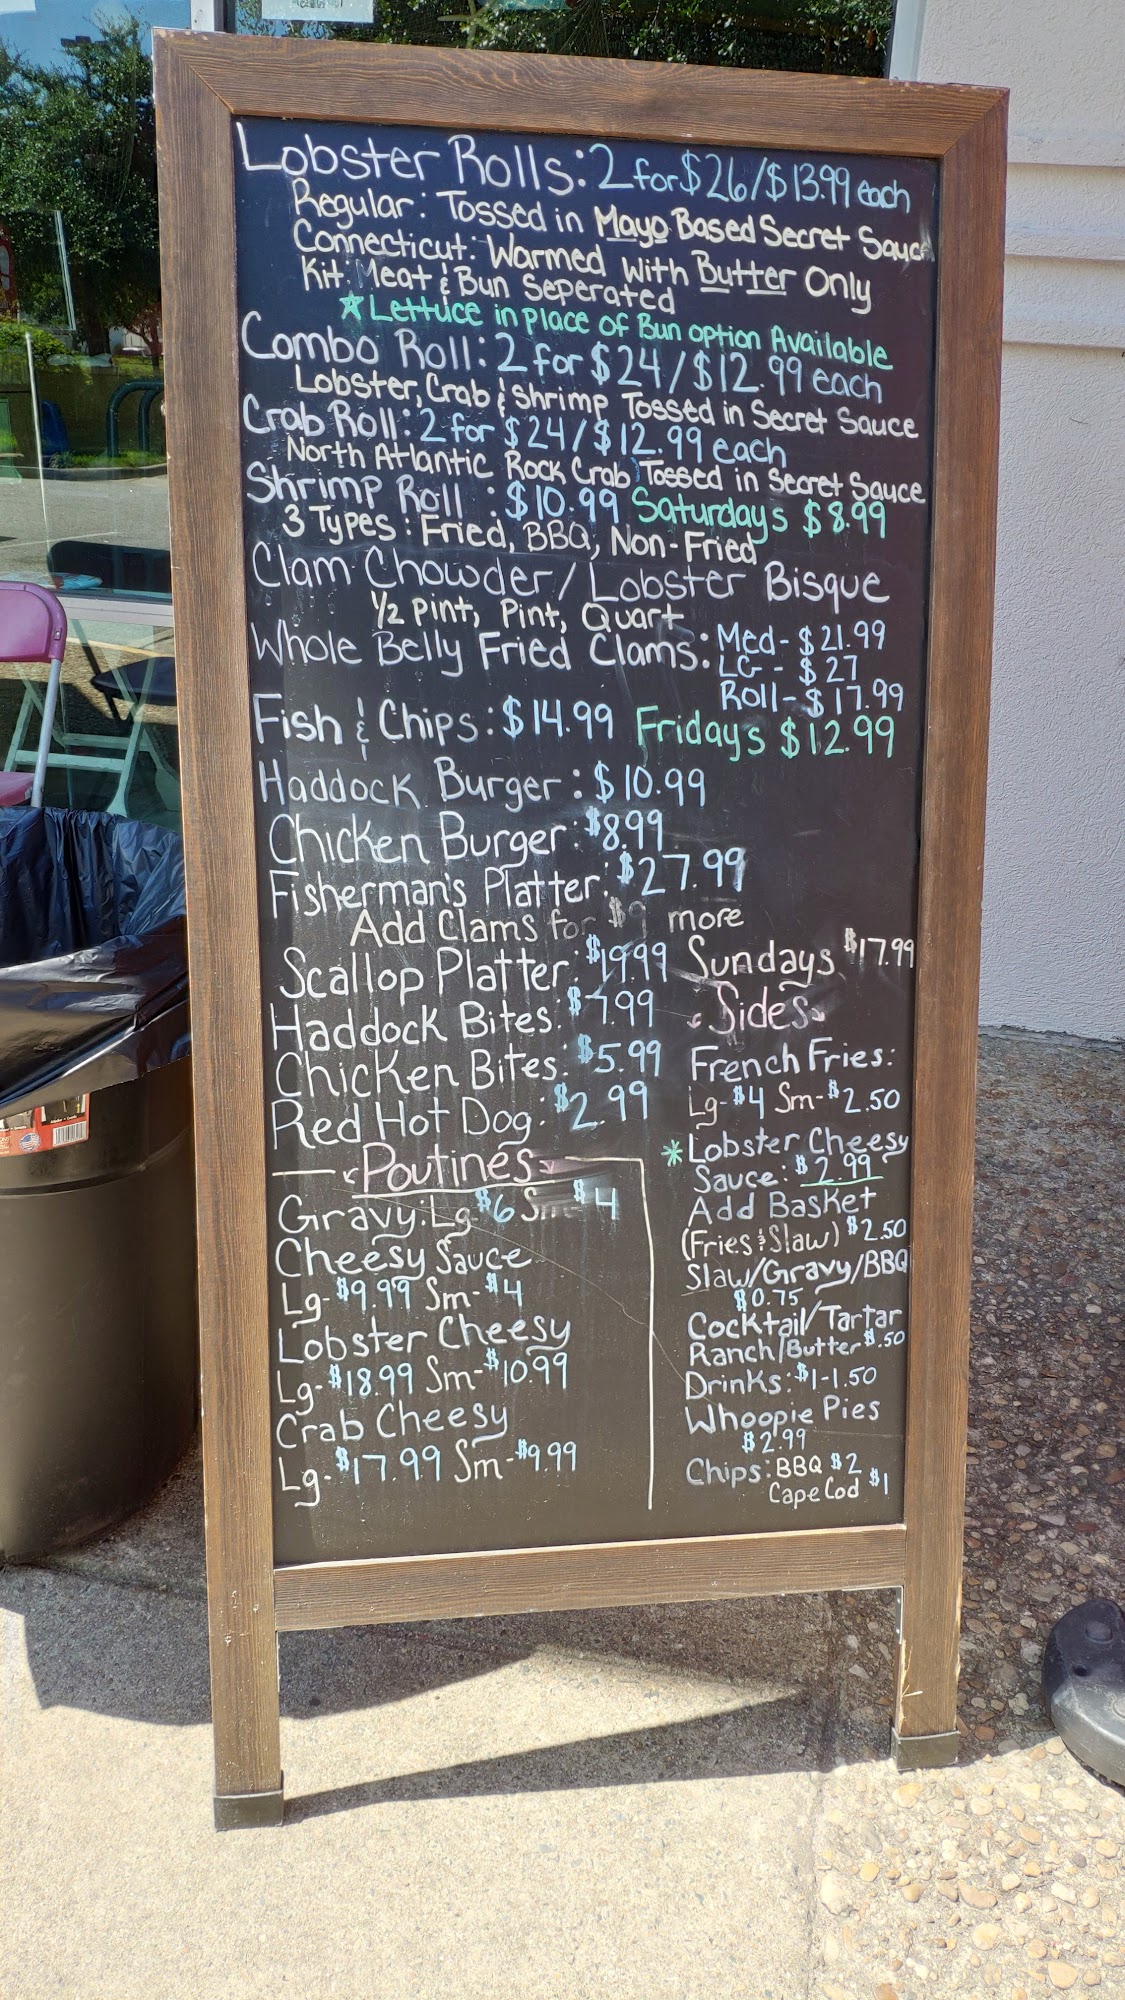 Lobster Rolls: 2 for $26/$13.99 each
Regular: Tossed in Mayo Based Secret Sauce
Connecticut: Warmed With Butter Only
Kit: Meat & Bun Seperated
*Lettuce in place of Bun option Available
Combo Roll: 2 for $24/$12.99 each
Lobster, Crab & Shrimp Tossed in Secret Sauce
Crab Roll: 2 for $24/$12.99 each
North Atlantic Rock Crab Tossed in Secret Sauce
Shrimp Roll : $10.99 Saturdays $8.99
3 Types: Fried, BBQ, Non-Fried
Clam Chowder/Lobster Bisque
1/2 Pint, Pint, Quart
Whole Belly Fried Clams: Med- $21.99
LG - $27
Roll- $17.99
Fish & Chips: $14.99 Fridays $12.99
Haddock Burger: $10.99
Chicken Burger: $8.99
Fisherman's Platter: $27.99
Add Clams for $9 more
Scallop Platter: $19.99 Sundays $17.99
Haddock Bites: $7.99
Chicken Bites: $5.99
Red Hot Dog: $2.99
Poutines
Gravy: Lg- $6 Sm- $4
Cheesy Sauce
Lg- $9.99 Sm- $4
Lobster Cheesy
Lg- $18.99 Sm- $10.99
Crab Cheesy
Lg- $17.99 Sm- $9.99
Sides
French Fries:
Lg- $4 Sm- $2.50
*Lobster Cheesy
Sauce: $2.99
Add Basket
(Fries & Slaw) $2.50
Slaw/Gravy/BBQ
$0.75
Cocktail/Tartar
Ranch/Butter $.50
Drinks: $1-1.50
Whoopie Pies
$2.99
Chips: BBQ $2
Cape Cod $1